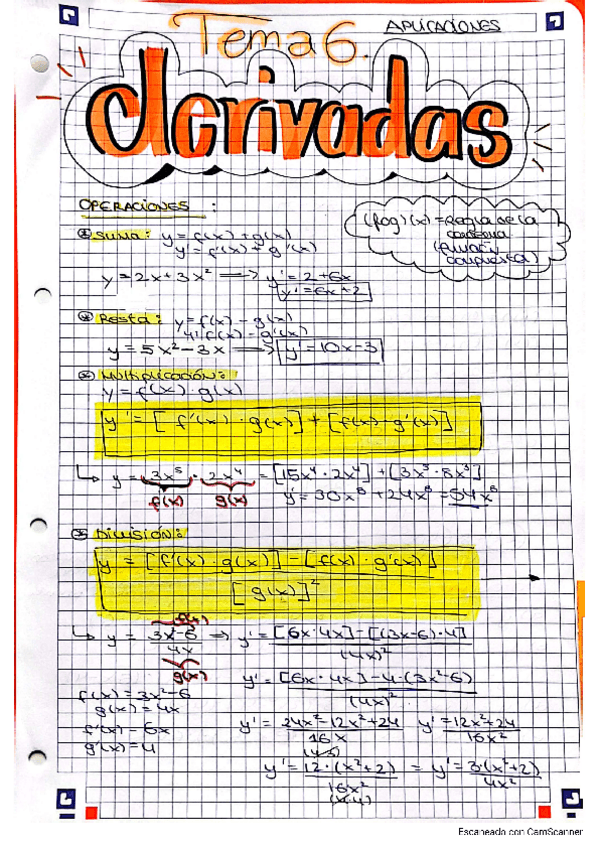 Tema 6.
APLICACIONES
derivadas
OPERACIONES :
(fog)(x) = Regla de la
cadena
(función
compuesta)
Suma: y = f(x) + g(x)
y' = f'(x) + g'(x)
y = 2x + 3x² ⟹ y' = 2 + 6x
y' = 6x + 2
Resta: y = f(x) - g(x)
y' f'(x) - g'(x)
y = 5x² - 3x ⟹ y' = 10x - 3
Multiplicación:
y = f(x) · g(x)
y' = [f'(x) · g(x)] + [f(x) · g'(x)]
y = 3x⁵ · 2x⁴ = [15x⁴ · 2x⁴] + [3x⁵ · 8x³]
f(x) g(x) y' = 30x⁸ + 24x⁸ = 54x⁸
División:
y = [f'(x) · g(x)] - [f(x) · g'(x)]
[g(x)]²
f(x)
y = 3x²-6 ⟹ y' = [6x · 4x] - [(3x-6) · 4]
4x (4x)²
g(x)
y' = [6x · 4x] - 4 · (3x²-6)
(4x)²
f(x) = 3x² - 6
g(x) = 4x
f'(x) = 6x
g'(x) = 4
y' = 24x² - 12x² + 24 y' = 12x² + 24
16x 16x²
y' = 12 · (x² + 2) = y' = 3 · (x² + 2)
16x² 4x²
(4·4)
Escaneado con CamScanner